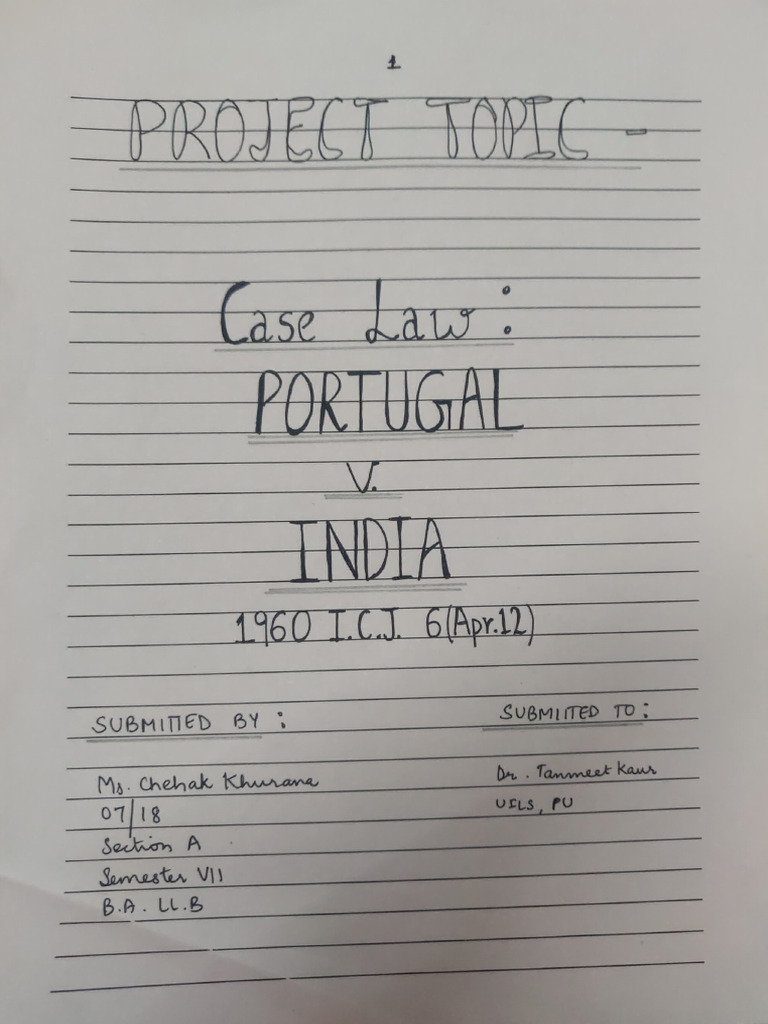 1
PROJECT TOPIC -
Case Law :
PORTUGAL
V.
INDIA
1960 I.C.J. 6(Apr.12)
SUBMITTED BY :
SUBMITTED TO :
Ms. Chehak Khurana
Dr. Tanmeet Kaur
07/18
UILS, PU
Section A
Semester VII
B.A. LL.B